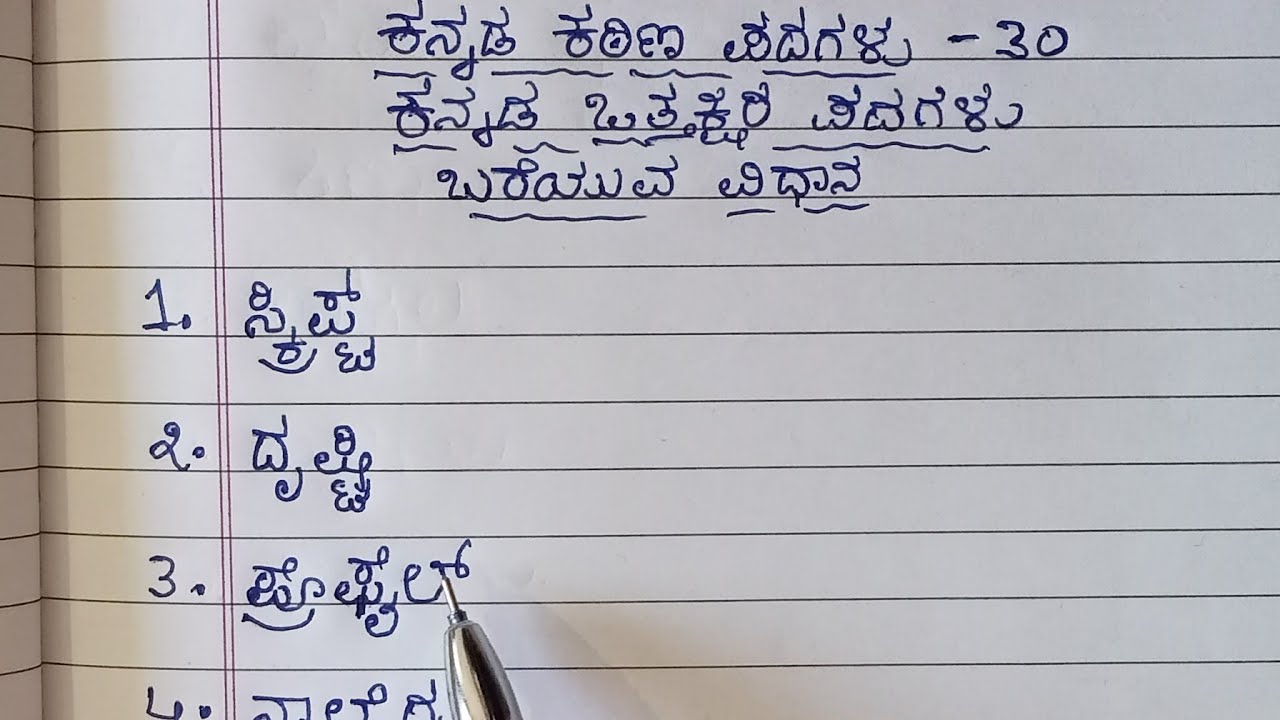 ಕನ್ನಡ ಕಠಿಣ ಪದಗಳು - 30
ಕನ್ನಡ ಒತ್ತಕ್ಷರ ಪದಗಳು
ಬರೆಯುವ ವಿಧಾನ
1. ಸ್ಕ್ರಿಪ್ಟ್
೩. ದೃಷ್ಟಿ
3. ಪ್ರೊಫೈಲ್
೪.